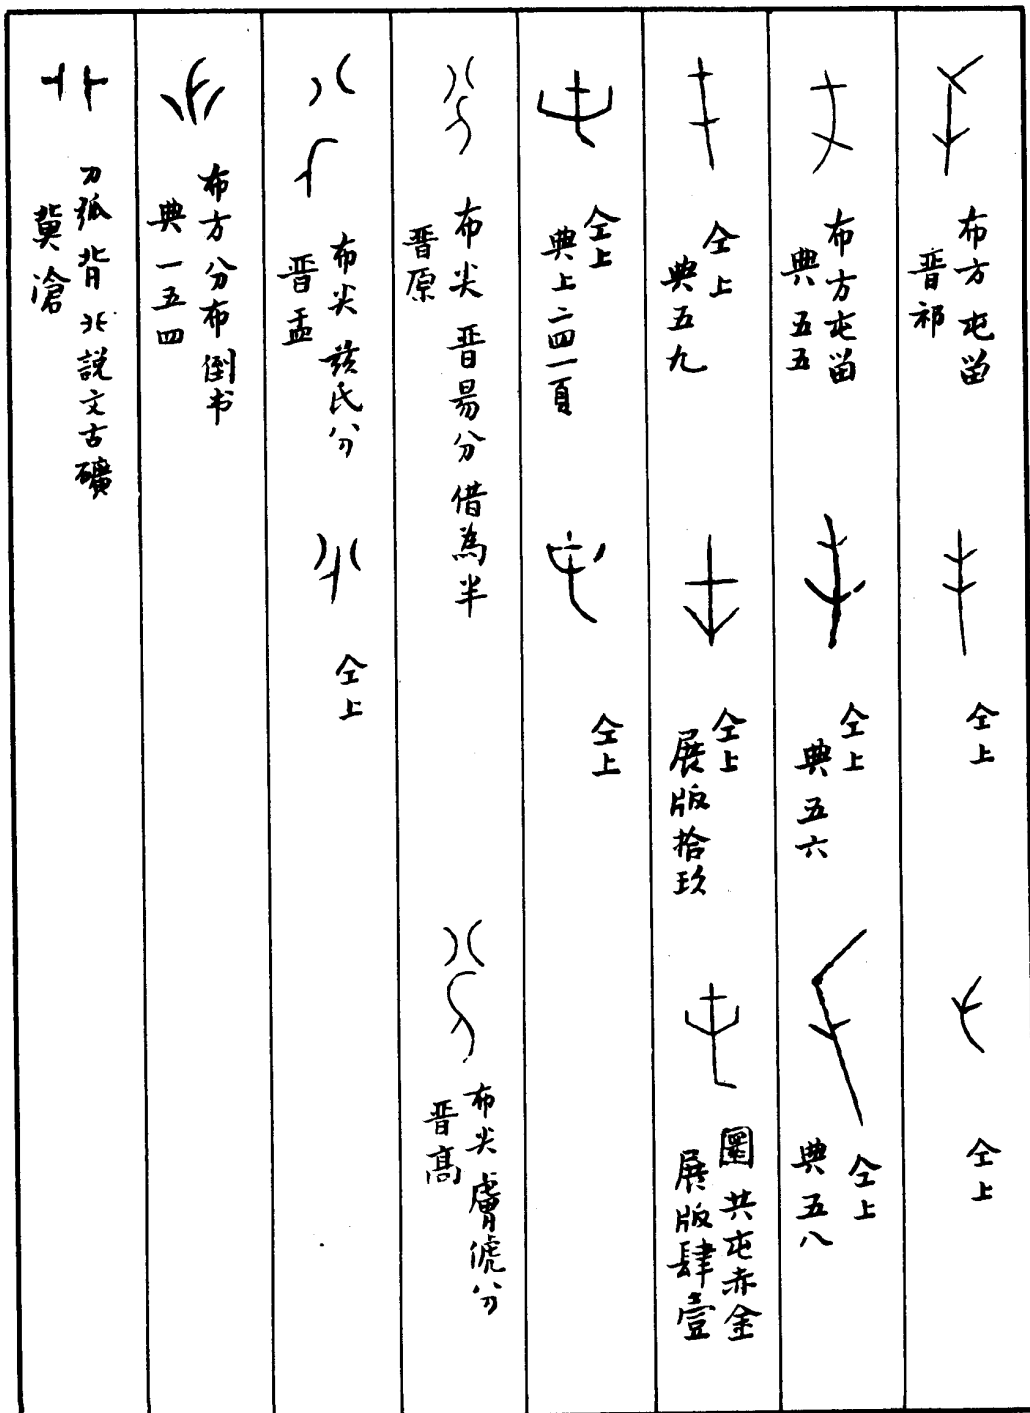 布方屯畄
晋祁
仝上
仝上
布方屯畄
典五五
仝上
典五六
仝上
典五八
仝上
典五九
仝上
展版拾玖
圜共屯赤金
展版肆壹
仝上
典上二四一頁
仝上
布尖晋昜分借為半
晋原
布尖膚俿分
晋高
布尖兹氏分
晋盂
仝上
布方分布倒书
典一五四
刀弧背北説文古礦
冀滄